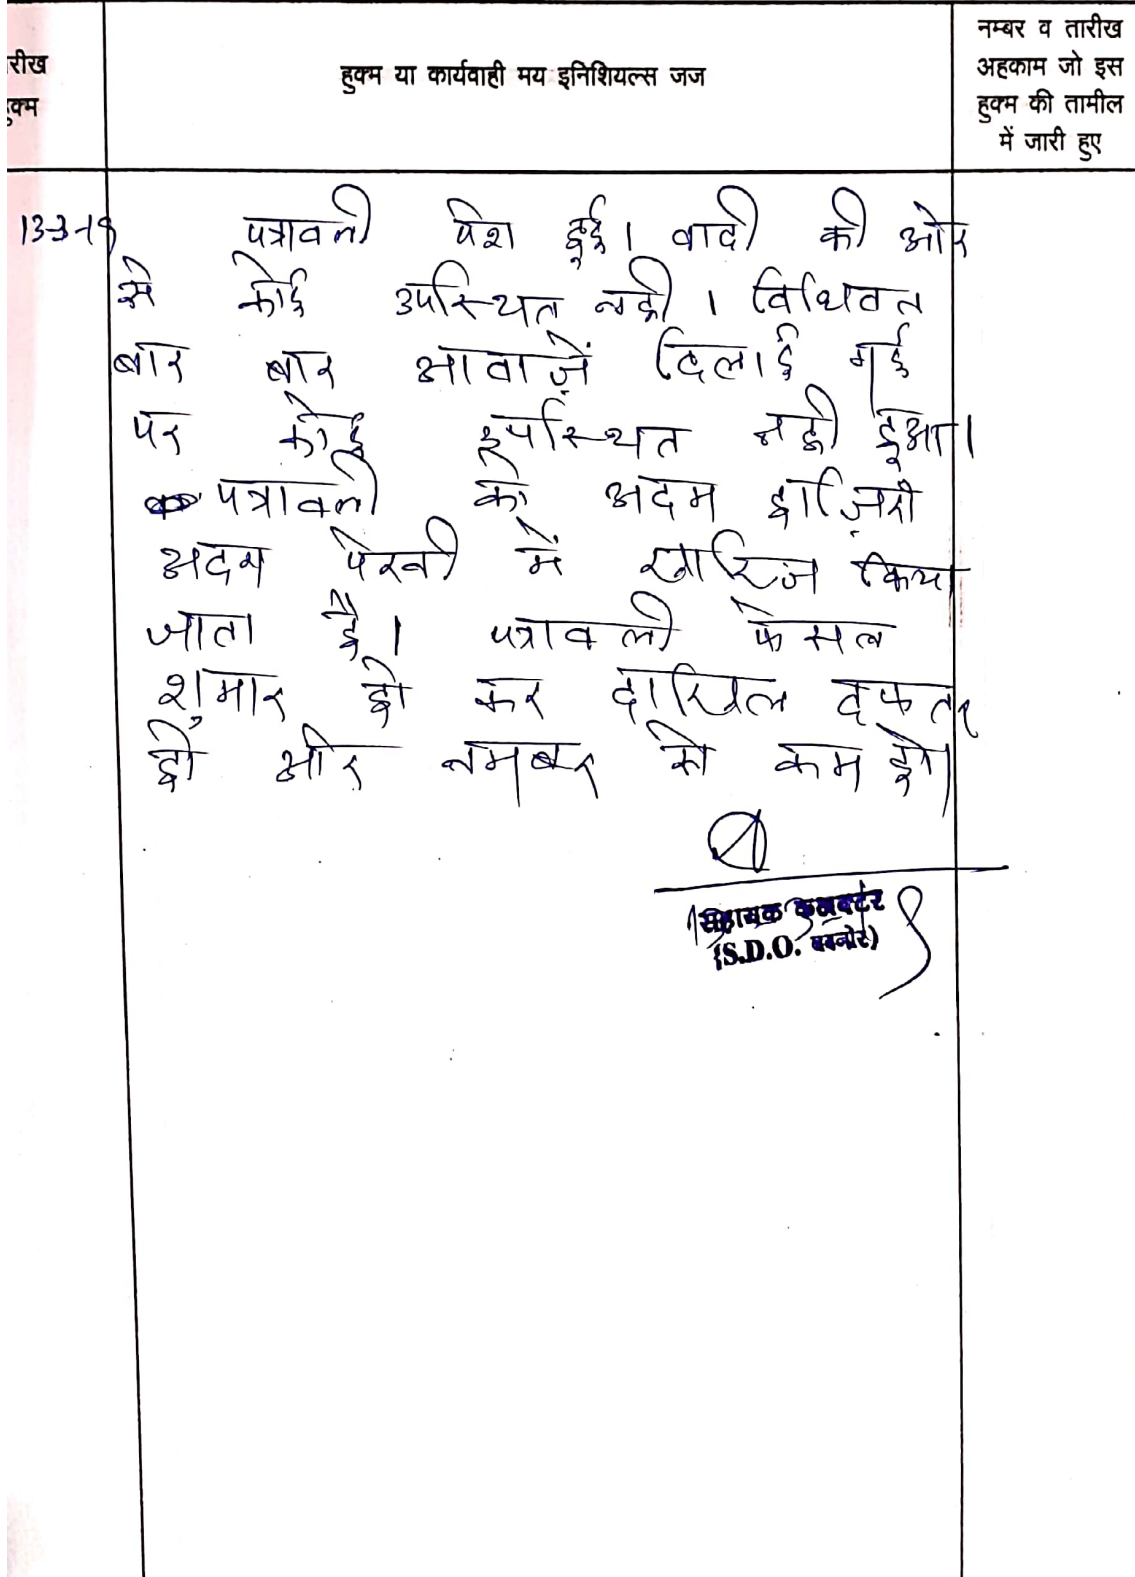 रीख
हुक्म
हुक्म या कार्यवाही मय इनिशियल्स जज
नम्बर व तारीख
अहकाम जो इस
हुक्म की तामील
में जारी हुए
13-3-19 पत्रावली पेश हुई। वादी की ओर
से कोई उपस्थित नही। विधिवत
बार बार आवाज़ें दिलाई गई
पर कोई उपस्थित नही हुआ।
पत्रावली को अदम हाज़िरी
अदम पेरवी में खारिज किया
जाता है। पत्रावली फेसल
शुमार हो कर दाखिल दफतर
हो और नमबर से कम हो।
सहायक कलक्टर
(S.D.O.